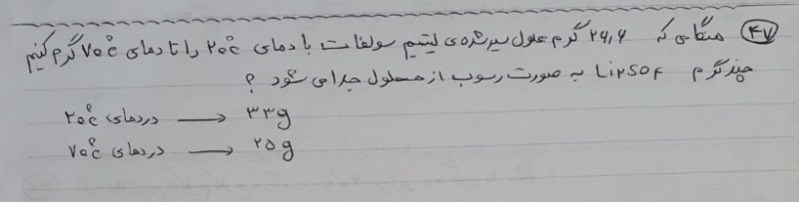 ۴۷ هنگامی که ۲۶,۶ گرم محلول سیرشده‌ی لیتیم سولفات با دمای ۲۰°c را تا دمای ۷۰°c گرم کنیم
چند گرم Li۲SO۴ به صورت رسوب از محلول جدا می شود ؟
در دمای ۲۰°c → ۳۳g
در دمای ۷۰°c → ۲۵g